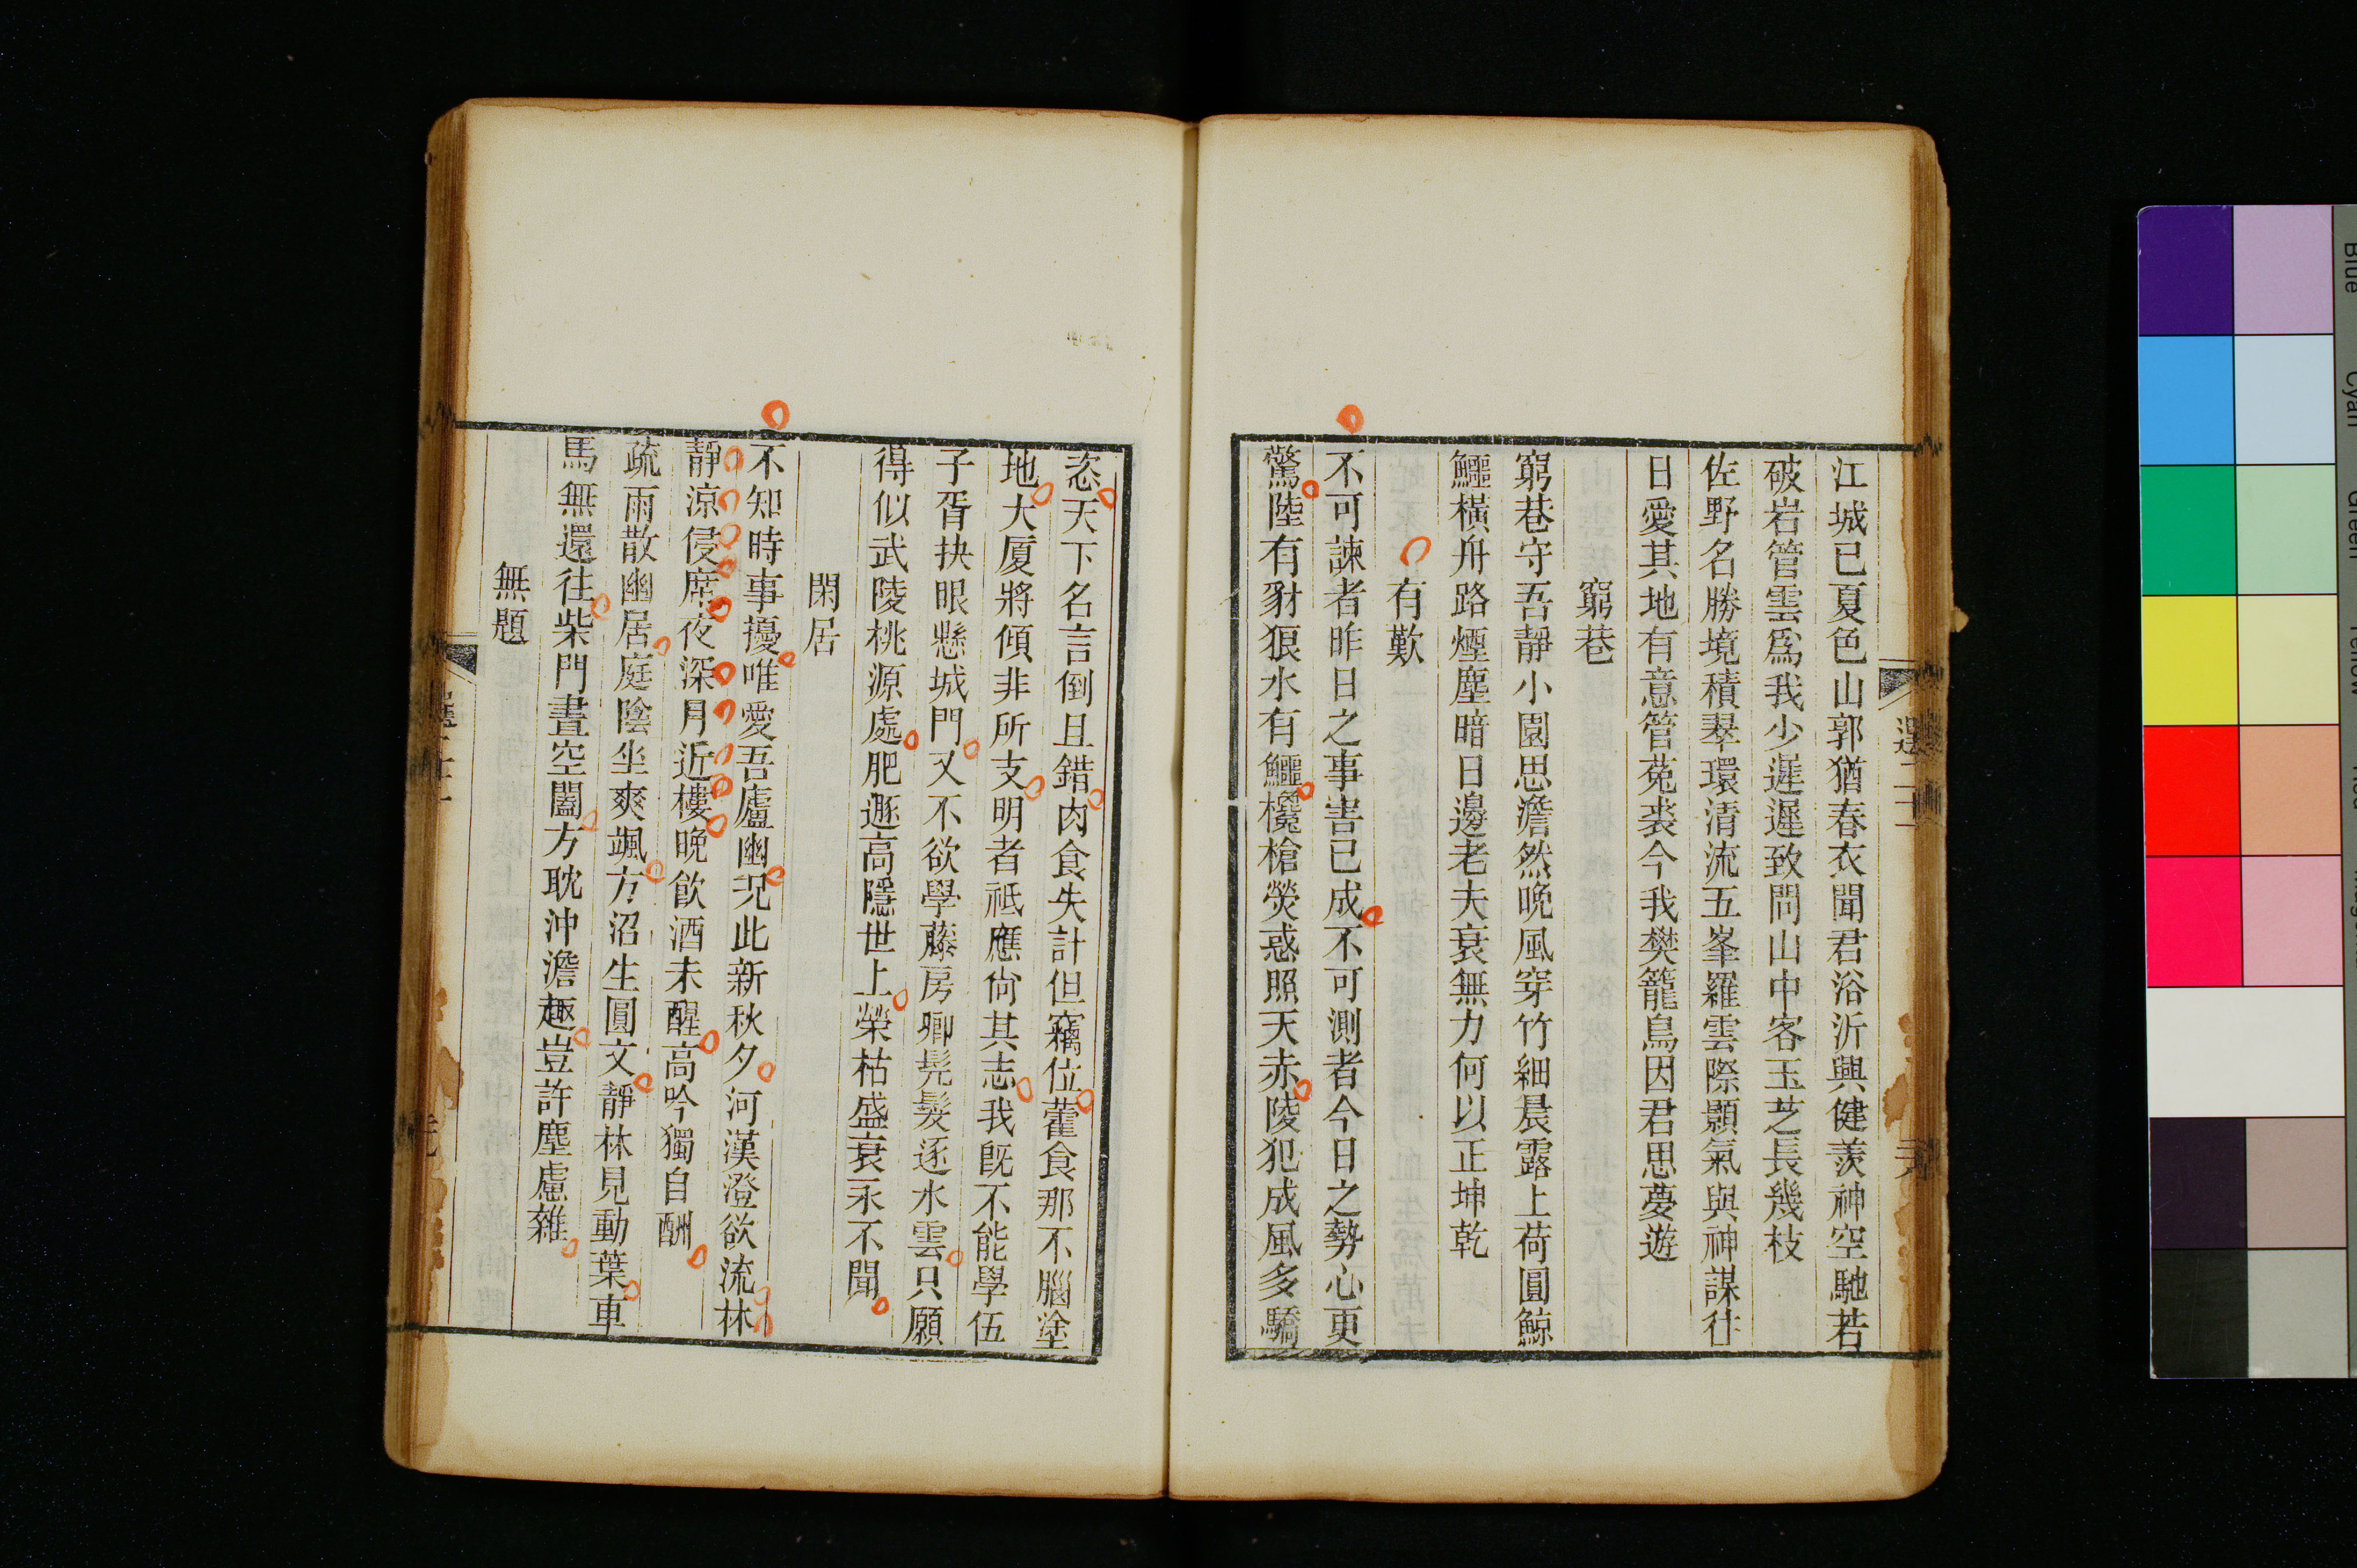 江城已夏色山郭猶春衣聞君浴沂興健羨神空馳若
破岩管雲爲我少遲遲致問山中客玉芝長幾枝
佐野名勝境積翠環清流五峯羅雲際顥氣與神謀往
日愛其地有意管菟裘今我樊籠鳥因君思夢遊
窮巷
窮巷守吾靜小園思澹然晩風穿竹細晨露上荷圓鯨
鱷橫舟路煙塵暗日邊老夫衰無力何以正坤乾
有歎
不可諫者昨日之事吿已成不可測者今日之勢心更
驚陸有豺狠水有鱷欃槍熒惑照天赤陵犯成風多驕
恣天下名言倒且錯肉食失計但竊位藿食那不腦塗
地大厦將傾非所支明者祇應尙其志我旣不能學伍
子胥抉眼懸城門又不欲學藤房卿髡髮逐水雲只願
得似武陵桃源處肥遯高隱世上榮枯盛衰永不聞
閑居
不知時事擾唯愛吾廬幽況此新秋夕河漢澄欲流林
靜涼侵席夜深月近樓晩飮酒未醒高吟獨自酬
疏雨散幽居庭陰坐爽颯方沼生圓文靜林見動葉車
馬無還往柴門晝空闔方耽沖澹趣豈許塵慮雜
無題